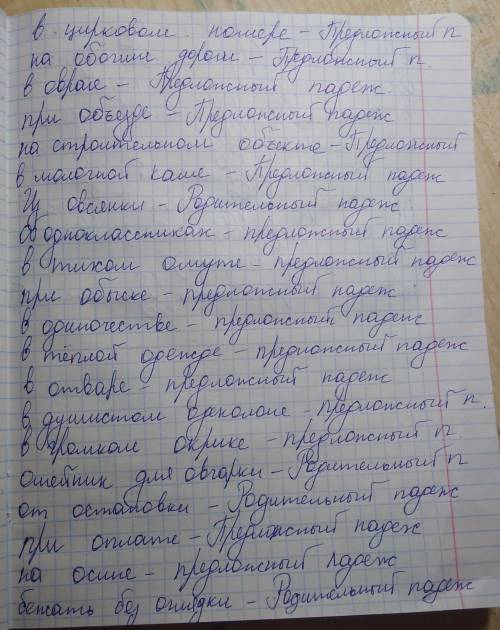 в цирковом номере – Предложный п
на обочине дороги – Предложный п.
в овраге – Предложный падеж
при объезде – Предложный падеж
на строительном объекте – Предложный
в молочной каше – Предложный падеж
Из овсянки – Родительный падеж
об одноклассниках – предложный падеж
в тихом омуте – предложный падеж
при обыске – предложный падеж
в одиночестве – предложный падеж
в тёплой одежде – предложный падеж
в отваре – предложный падеж
в душистом одеколоне – предложный п.
в громком окрике – предложный п
ошейник для овчарки – Родительный п
от остановки – Родительный падеж
при оплате – Предложный падеж
на осине – предложный падеж
бежать без оглядки – Родительный падеж